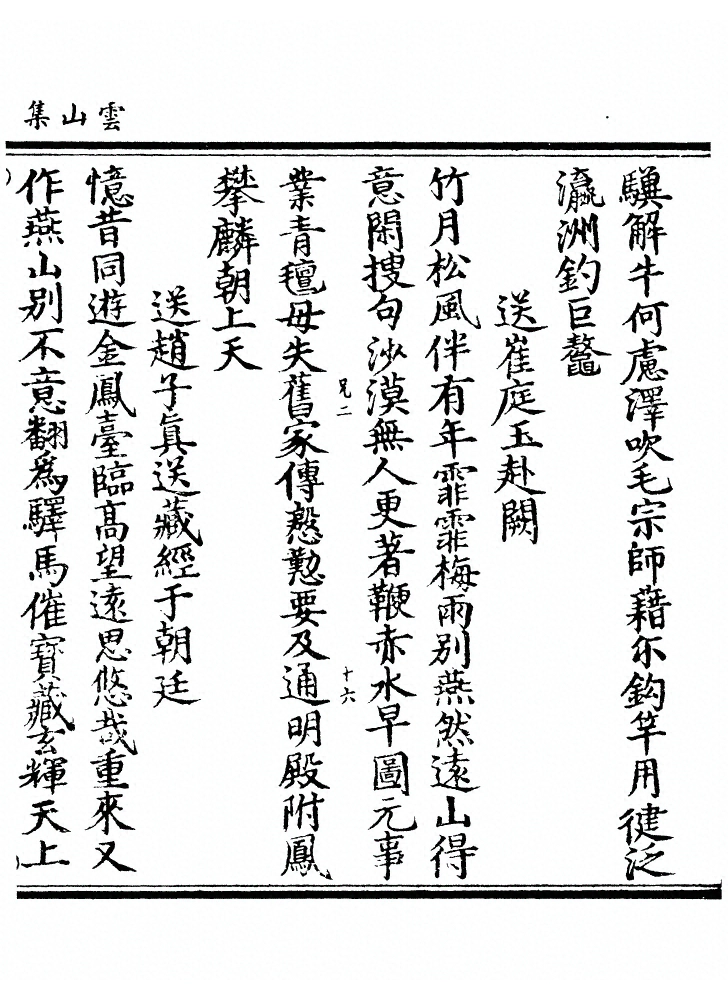 雲山集
驥解牛何慮澤吹毛宗師藉尒鈎竿用徤泛
瀛洲釣巨鼇
送崔庭玉赴闕
竹月松風伴有年霏霏梅雨別燕然遠山得
意閑搜句沙漠無人更著鞭赤水早圖元事
兄二
十六
業青氊毋失舊家傳慇懃要及通明殿附鳳
攀麟朝上天
送趙子真送藏經于朝廷
憶昔同遊金鳳臺臨高望遠思悠哉重來又
作燕山別不意翻爲驛馬催寶藏玄輝天上